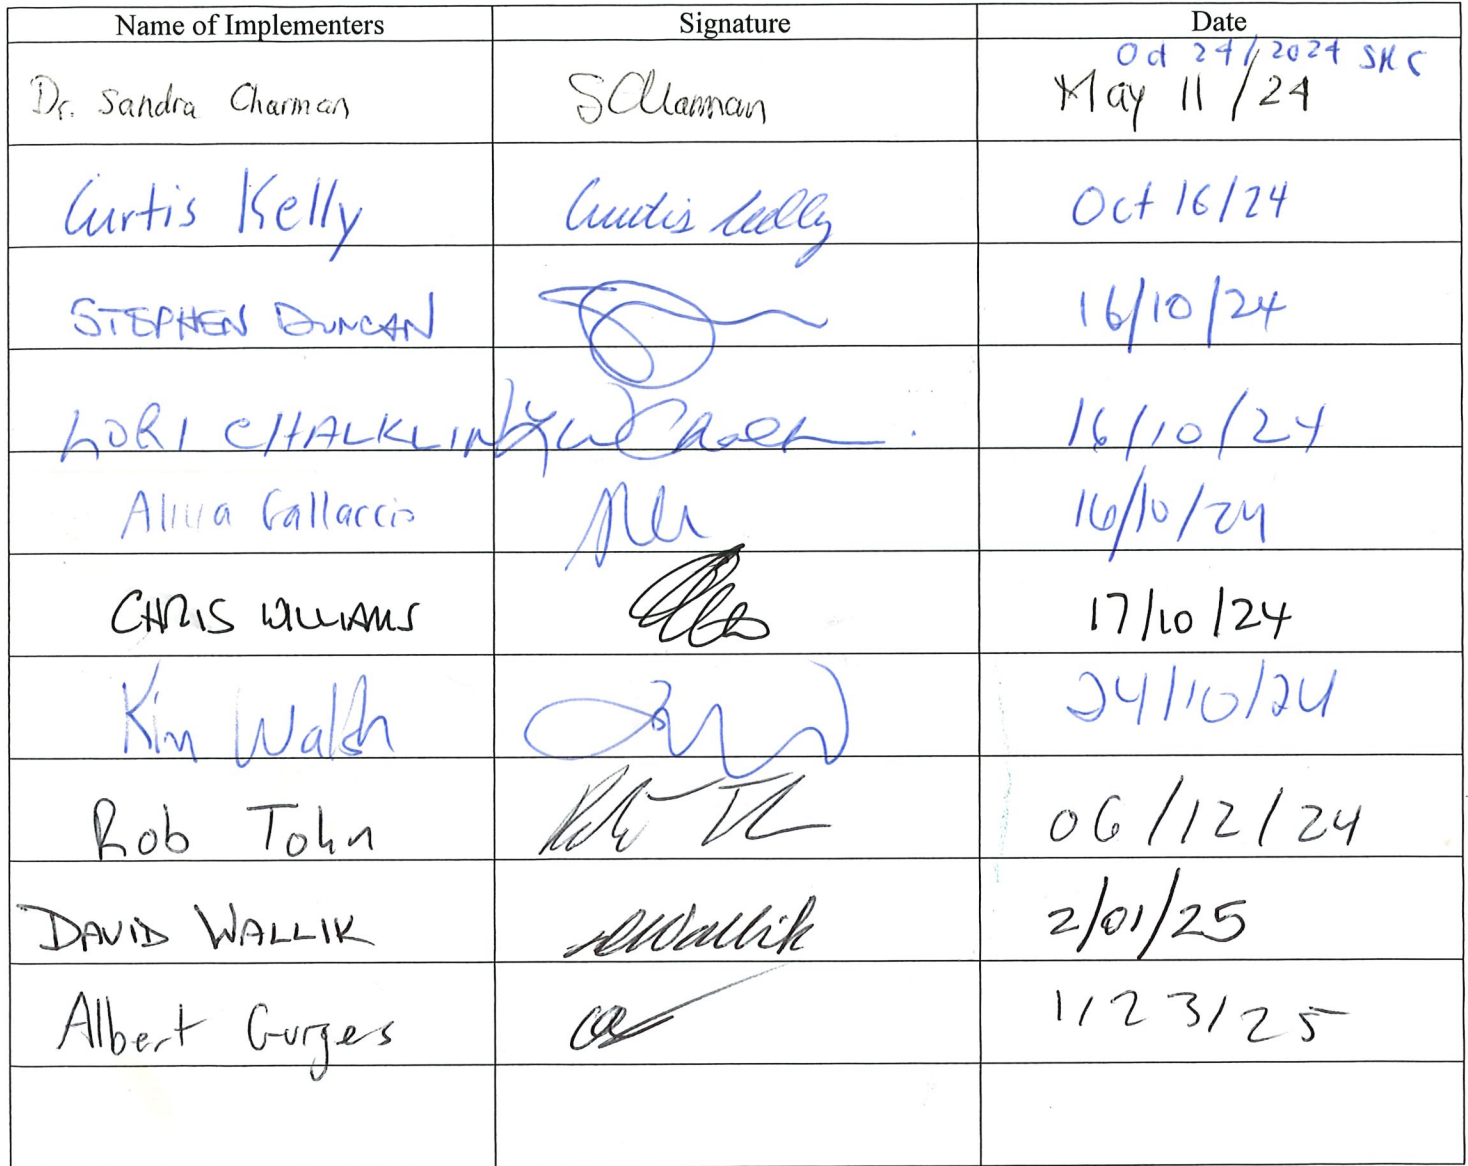 Name of Implementers Signature Date
Oct 24/2024 SMC
Dr. Sandra Charman SCharman May 11/24
Curtis Kelly Curtis Kelly Oct 16/24
STEPHEN DUNCAN 16/10/24
LORI CHALKLIN 16/10/24
Alivia Gallaccio 16/10/24
CHRIS WILLIAMS 17/10/24
Kim Walsh 24/10/24
Rob Tohn 06/12/24
DAVID WALLIK DWallik 2/01/25
Albert Gurges 1/23/25